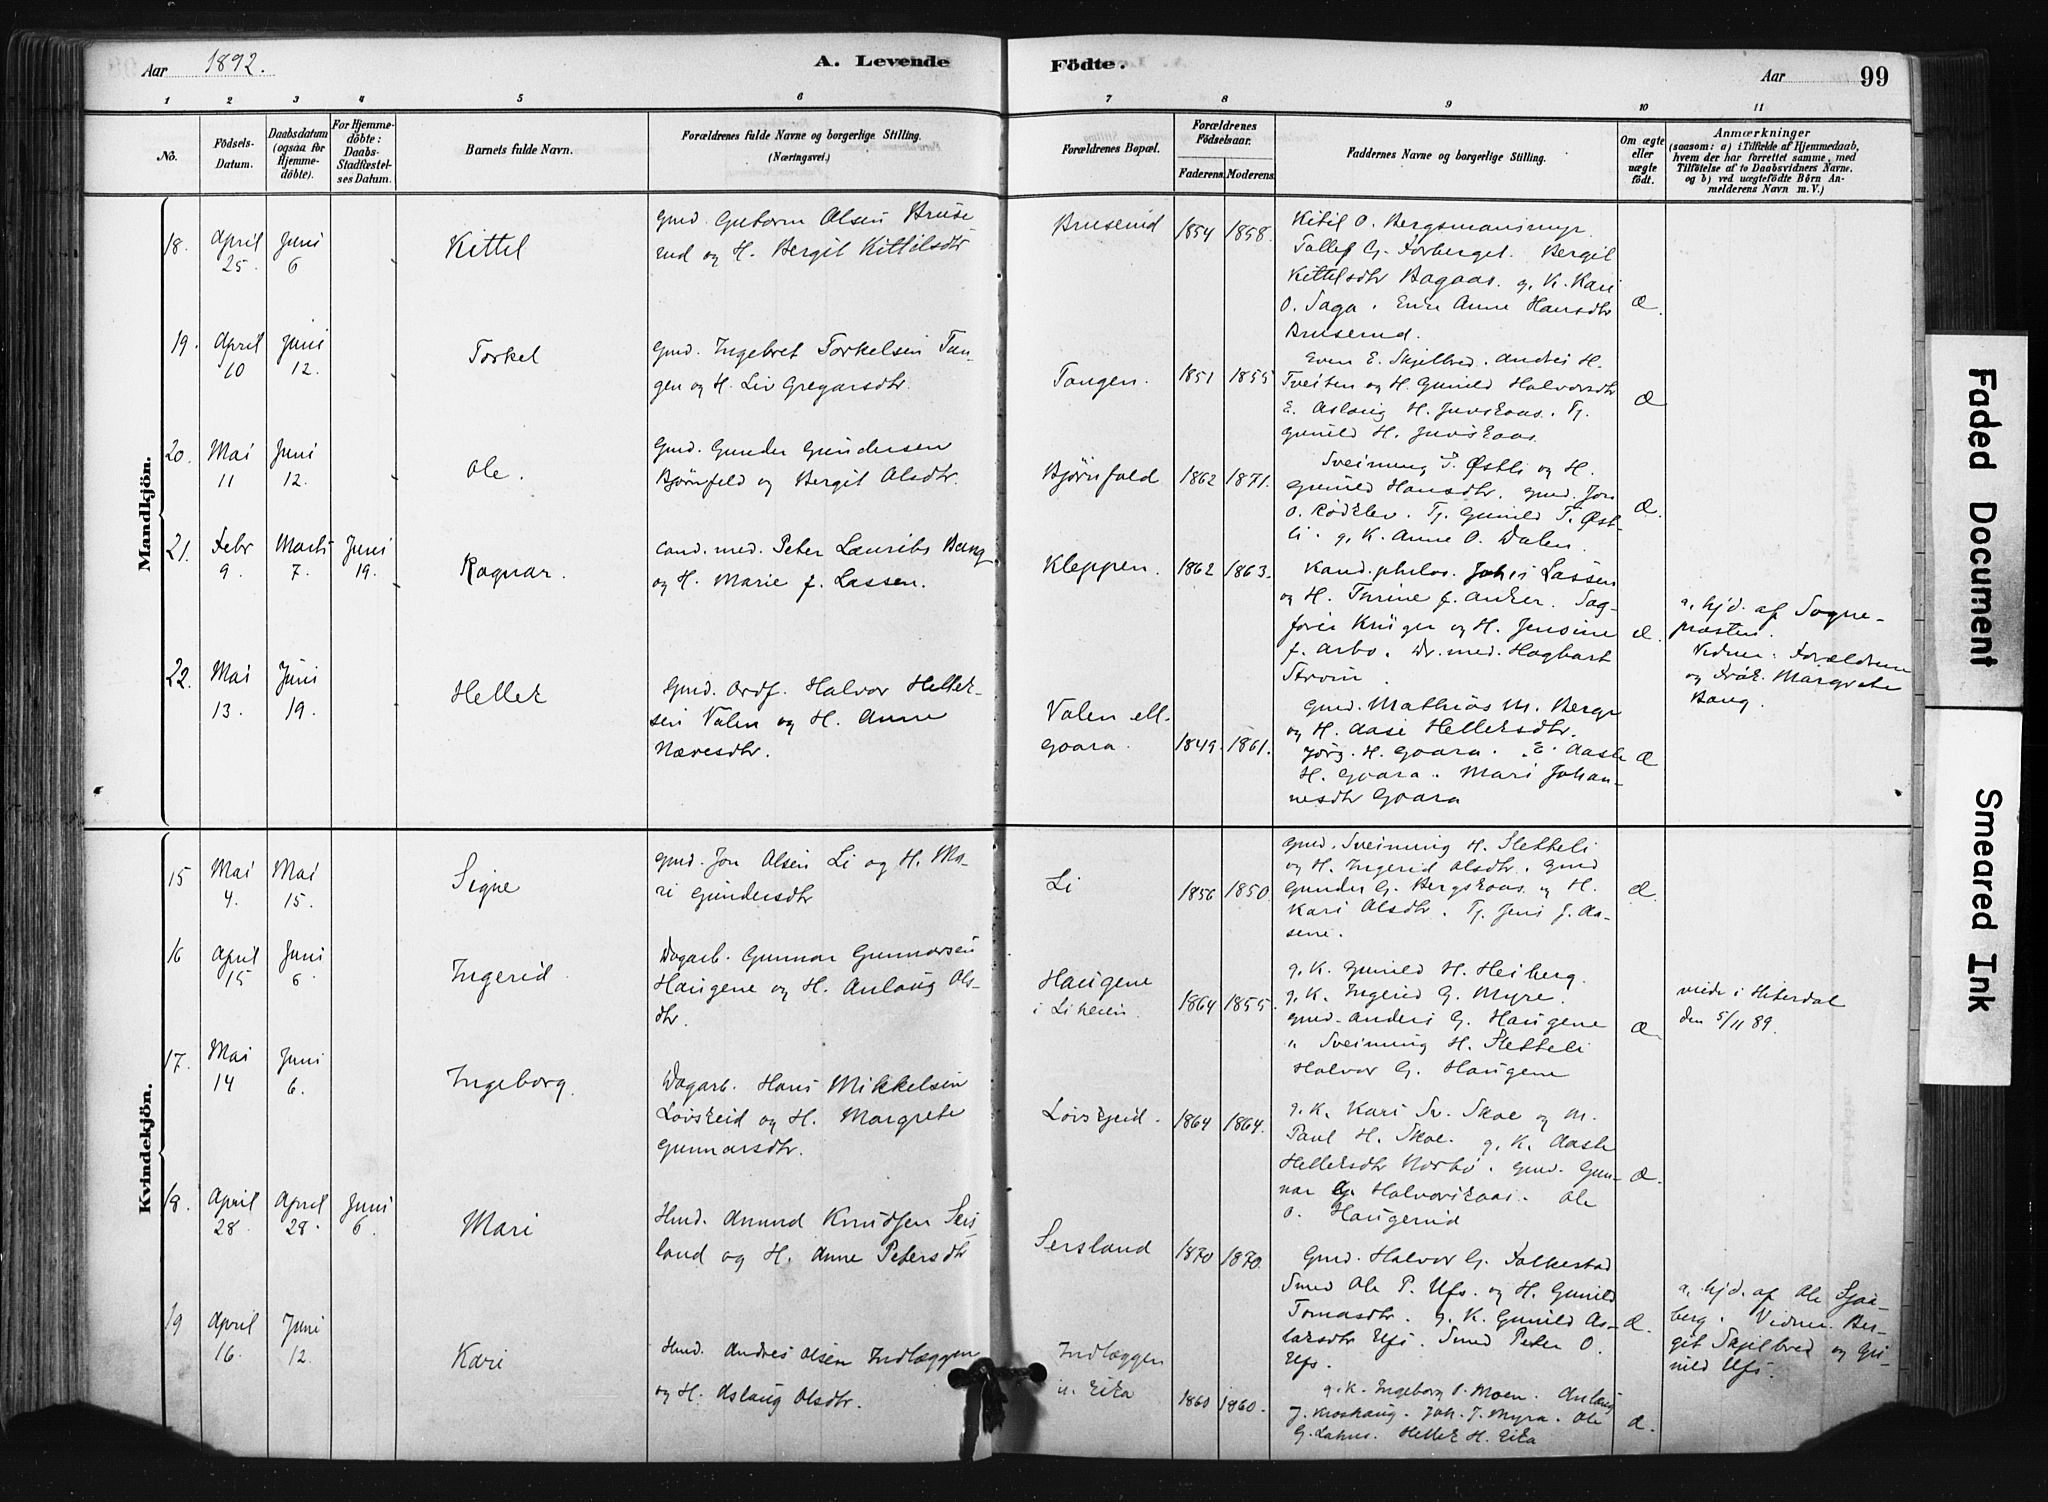 Aar 1892.
A. Levende Födte.
Aar 99
1 2 3 4 5 6 7 8 9 10 11
No.
Födsels-Datum.
Daabsdatum (ogsaa for Hjemmedöbte).
For Hjemmedöbte: Daabs-Stadfæstelses Datum.
Barnets fulde Navn.
Forældrenes fulde Navne og borgerlige Stilling.
(Næringsvei.)
Forældrenes Bopæl.
Forældrenes Födselsaar.
Faderens. Moderens.
Faddernes Navne og borgerlige Stilling.
Om ægte eller uægte födt.
Anmærkninger
(saasom: a) i Tilfælde af Hjemmedaab, hvem der har forrettet samme, med Tilföielse af to Daabsvidners Navne, og b) ved uægtefödte Børn Anmelderens Navn m. V.)
Mandkjön.
18. April 25. Juni 6 Kittel
Gmd. Gutorm Olsen Bruse
rud og H. Bergit Kittilsdtr
Bruserud 1854 1858.
Kitil O. Bergsmansmyr.
Tollef G. Forberget. Bergit
Kittelsdtr Bagaas. g. K. Kari
O. Saga. Enke Anne Hansdtr
Bruserud.
Æ.
19. April 10 Juni 12. Torkel
Gmd. Ingebret Torkelsen Tan-
gen og H. Liv Gregarsdtr.
Tangen. 1851 1855
Even E. Skjelbred. Andres H.
Tveiten og H. Gunild Halvorsdtr
E. Aslaug H. Juvskaas. Tj.
Gunild H. Juvskaas.
Æ
20. Mai 11 Juni 12. Ole.
Gmd. Gunder Gundersen
Bjørnfeld og Bergit Olsdtr.
Bjørnfald 1862 1871.
Sveinung T. Østli og H.
Gunild Hansdtr. Gmd. Jon
O. Rødklev. Tj. Gunild T. Øst-
li. g. K. Anne O. Dalen.
Æ.
21. Febr 9. Marts 7. Juni 19. Ragnar.
Cand. med. Peter Laurits Bang
og H. Marie f. Lassen.
Kleppen. 1862 1863.
Kand. philos. Johs Lassen
og H. Thrine f. Anker. Sag-
fører Krüger og H. Jensine
f. Arbo. Dr. med. Hagbart
Strøm.
Æ.
a, hjd. af Sogne-
præsten.
Vidner: Forældrene
og Frøk. Margrete
Bang.
22. Mai 13. Juni 19. Hellek
Gmd. Ordf. Halvor Hellek-
sen Valen og H. Anne
Nævesdtr.
Valen ell.
Goara. 1849. 1861.
Gmd. Mathias M. Berge
og H. Aase Helleksdtr.
Jørg. H. Goara. E. Aasle
H. Goara. Mari Johan-
nesdtr Goara
Æ
Kvindekjön.
15 Mai 4. Mai 15. Signe
Gmd. Jon Olsen Li og H. Ma-
ri Gundersdtr
Li 1856 1850.
Gmd. Sveinung H. Sletteli
og H. Ingerid Olsdtr. Gmd
Gunder G. Bergskaas og H.
Kari Olsdtr. Tj. Jens J. Aa-
sene.
Æ.
16 April 15 Juni 6. Ingerid
Dagarb. Gunnar Gunnarsen
Haugene og H. Anlaug Ols-
dtr.
Haugene
i Liheien. 1864 1855.
g. K. Gunild H. Heiberg.
g. K. Ingerid G. Myre.
Gmd. Anders G. Haugene
" Sveinung H. Sletteli
Halvor G. Haugene
Æ
viede i Hiterdal
den 5/11 89.
17. Mai 14 Juni 6. Ingeborg.
Dagarb. Hans Mikkelsen
Løvskeid og H. Margrete
Gunnarsdtr.
Løvskjeid. 1864 1864.
g. K. Kari Sv. Skoe og M.
Paul H. Skoe. g. K. Aasle
Helleksdtr Norbø. Gmd. Gun-
nar G. Halvorskaas. Ole
O. Haugerud
Æ.
18. April 28 April 28. Juni 6. Mari
Hmd. Amund Knudsen Sers
land og H. Anne Petersdtr
Sersland 1870 1870.
Gmd. Halvor G. Folkestad
Smed Ole P. Ufs. og H. Gunild
Tomasdtr. g. K. Gunild As-
laksdtr Ufs. Smed Peter O.
Ufs.
Æ.
a, hjd. af Ole Sjaa-
berg. Vidner. Ber-
git Skjelbred og Gu-
nild Ufs.
19 April 16. Juni 12. Kari
Hmd. Andres Olsen Indlæggen
og H. Aslaug Olsdtr.
Indlæggen
u. Eika 1860 1860.
g. K. Ingeborg O. Moen. Anlaug
J. Kroshaug. Joh. J. Myra. Ole
G. Lahus. Hellek H. Eika
Æ.
Faded Document
Smeared Ink